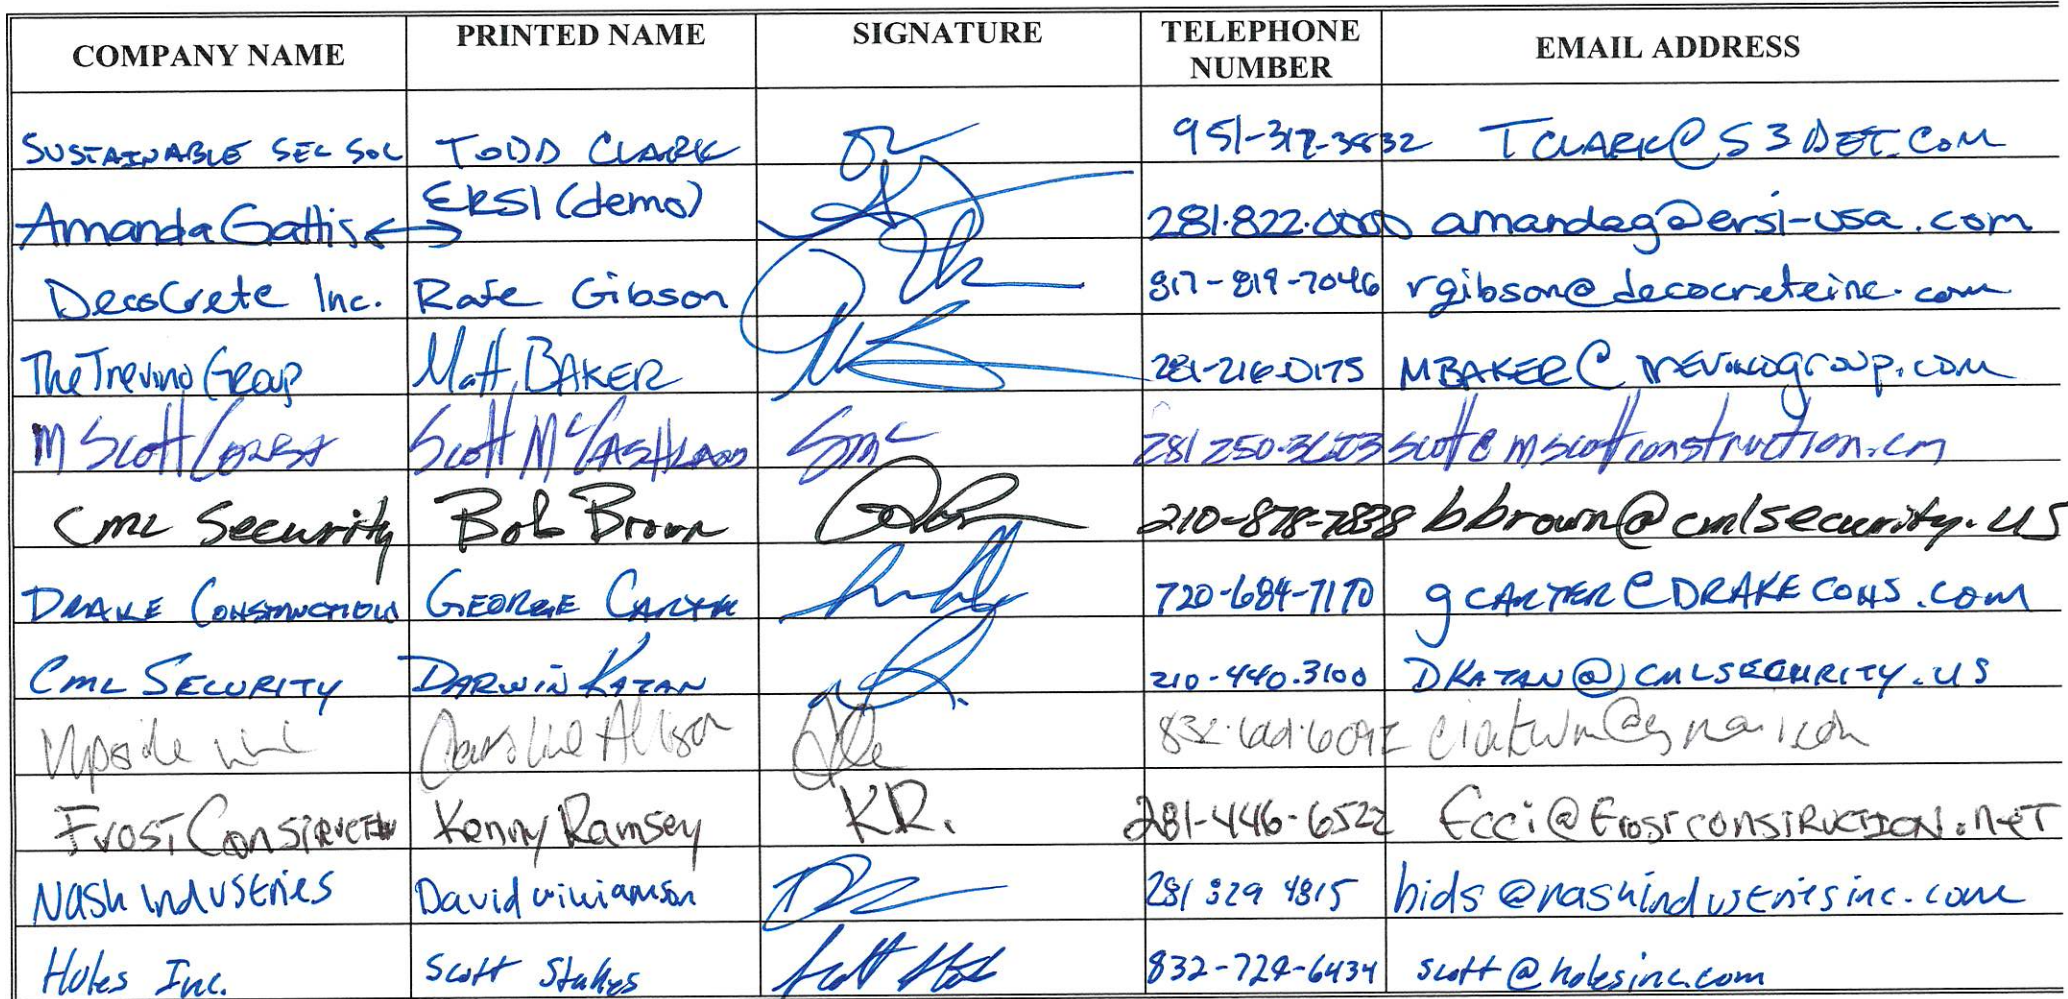 COMPANY NAME PRINTED NAME SIGNATURE TELEPHONE NUMBER EMAIL ADDRESS
SUSTAINABLE SEC SOL TODD CLARK TCLARK@S3DET.COM
Amanda Gattis ↔ ERSI (demo) 281.822.0000 amandag@ersi-usa.com
DecoCrete Inc. Rafe Gibson 817-819-7046 rgibson@decocreteinc.com
The Trevino Group Matt BAKER 281-216-0175 MBAKER@TREVINOGROUP.COM
M Scott Const Scott McCashland SMC scott@mscottconstruction.cm
CML Security Bob Brown 210-878-7838 bbrown@cmlsecurity.us
DRAKE CONSTRUCTION GEORGE CARTER 720-684-7170 gCARTER@DRAKECONS.COM
CML SECURITY DARWIN KATAN 210-440.3100 DKATAN@CMLSECURITY.US
Caroline Allison
FROST CONSTRUCTION Kenny Ramsey K.R. 281-446-6522 fcci@FROSTCONSTRUCTION.NET
Nash Industries David Williamson 281 329 4815 bids@nashindustriesinc.com
Holes Inc. Scott Stakes 832-729-6434 scott@holesinc.com